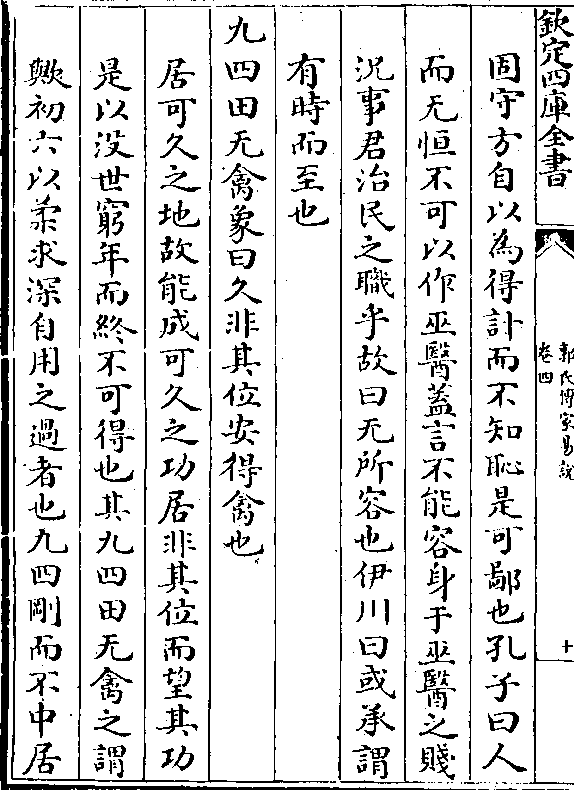 欽定四庫全書
郭氏傳家易說
卷四
十
固守方自以為得計而不知恥是可鄙也孔子曰人
而无恒不可以作巫醫蓋言不能容身于巫醫之賤
況事君治民之職乎故曰无所容也伊川曰或承謂
有時而至也
九四田无禽象曰久非其位安得禽也
居可久之地故能成可久之功居非其位而望其功
是以没世窮年而終不可得也其九四田无禽之謂
歟初六以柔求深自用之過者也九四剛而不中居